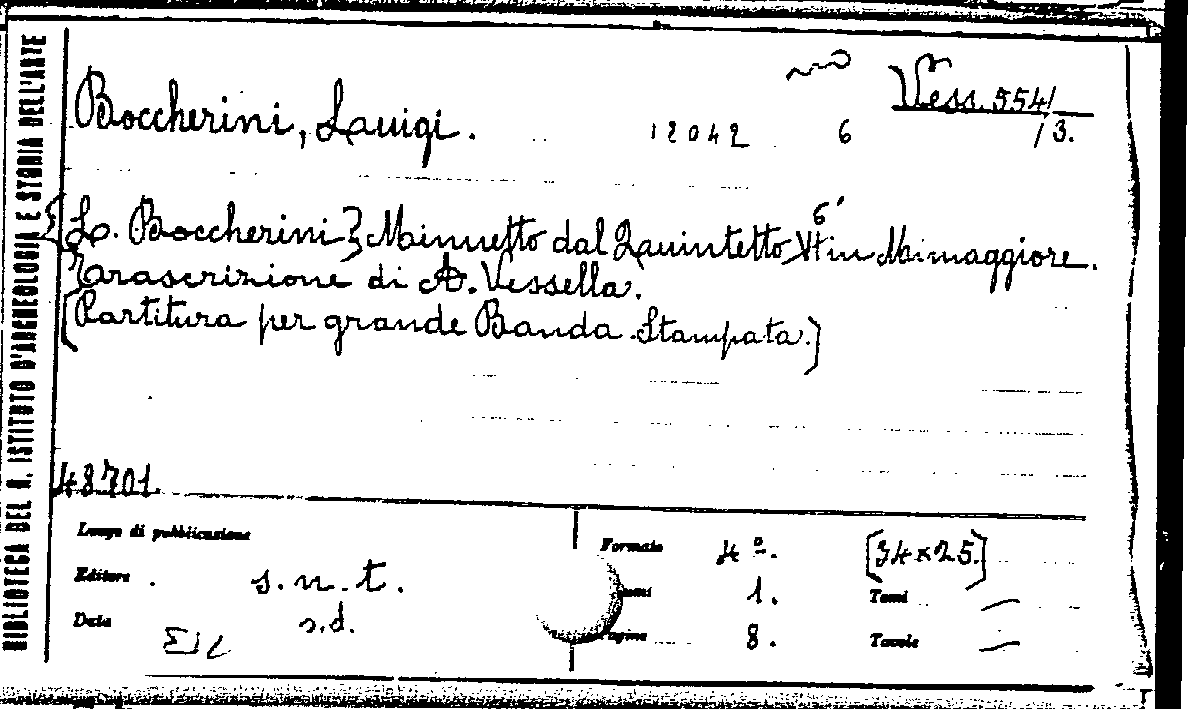 BIBLIOTECA DEL R. ISTITUTO D'ARCHEOLOGIA E STORIA DELL'ARTE
Vess. 554/
/3.
Boccherini, Luigi.
12042 6
[L. Boccherini] Minuetto dal Quintetto 6º in Mi maggiore.
Trascrizione di A. Vessella.
[Partitura per grande Banda. Stampata.]
48701.
Luogo di pubblicazione
Editore s.n.t.
Data s.d.
Formato 4º. [34×25.]
1. Tomi —
Pagine 8. Tavole —